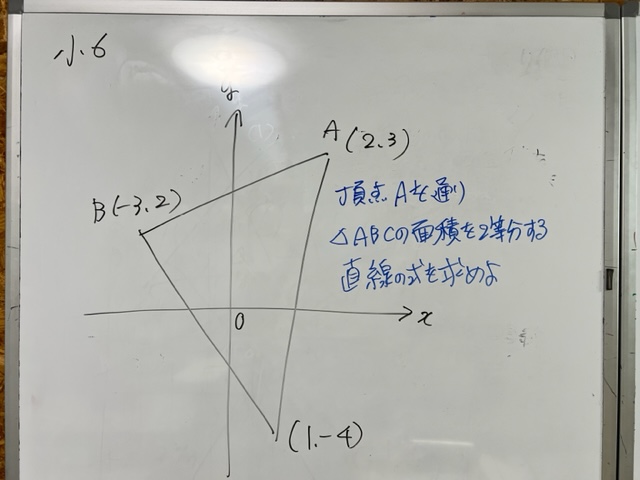 小6
y
A(2.3)
B(-3.2)
頂点Aを通り
△ABCの面積を2等分する
直線の式を求めよ
0
x
(1.-4)